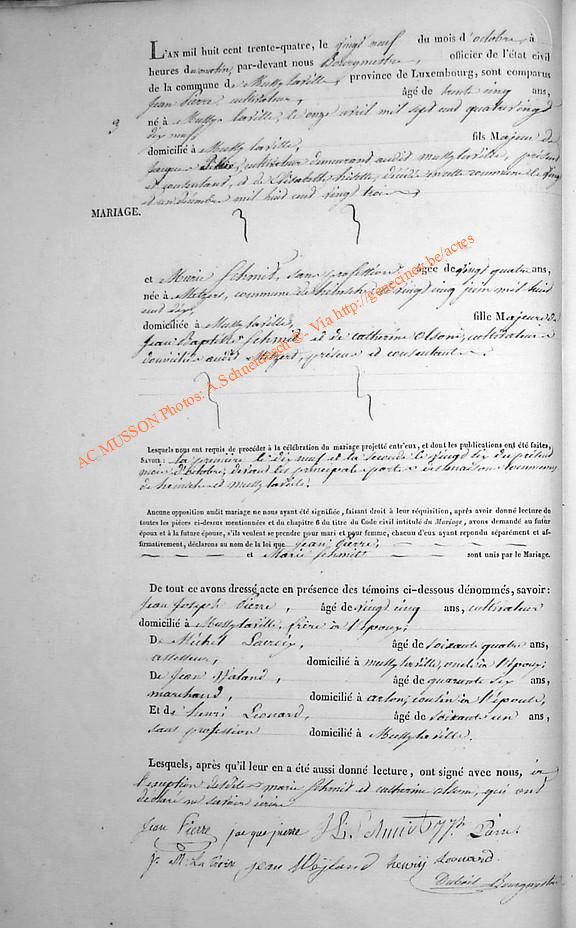 L'AN mil huit cent trente-quatre, le vingt neuf du mois d'octobre, à
heures du matin, par-devant nous Bourgmestre, officier de l'état civil
de la commune de Mussy laville, province de Luxembourg, sont comparus
Jean Pierre, cultivateur, âgé de trente cinq ans,
né à Mussy laville, le onze avril mil sept cent quatre vingt
9
dix neuf
domicilié à Mussy laville, fils Majeur de
Jacques Pierre, cultivateur demeurant audit mussy laville, présent
et consentant, et de Elisabeth, décédée en cette commune le vingt
et un décembre mil huit cent vingt trois,
MARIAGE.
et Marie Schmit, sans profession, âgée de vingt quatre ans,
née à Metzert, commune de vingt cinq juin mil huit
cent dix,
domiciliée à Mussy laville, fille Majeure de
Jean Baptiste Schmit et de catherine Olsem, cultivateurs
domiciliés audit Metzert, présens et consentants.
AC MUSSON Photos: A.Schneibach ® - Via http://genecinex.be/actes
Lesquels nous ont requis de procéder à la célébration du mariage projetté entr'eux, et dont les publications ont été faites,
SAVOIR: la première le dix neuf et la seconde le vingt six du présent
mois d'octobre, devant les principales portes des maisons communes
de et mussy laville.
Aucune opposition audit mariage ne nous ayant été signifiée, faisant droit à leur réquisition, après avoir donné lecture de
toutes les pièces ci-dessus mentionnées et du chapitre 6 du titre du Code civil intitulé du Mariage, avons demandé au futur
époux et à la future épouse, s'ils veulent se prendre pour mari et pour femme, chacun d'eux ayant répondu séparément et af-
firmativement, déclarons au nom de la loi que Jean Pierre,
et Marie Schmit sont unis par le Mariage.
De tout ce avons dressé acte en présence des témoins ci-dessous dénommés, savoir:
Jean Joseph Pierre, âgé de vingt cinq ans, cultivateur
domicilié à Mussy laville, frère à l'époux;
De Michel Lacroix, âgé de soixante quatre ans,
assesseur, domicilié à mussy laville, oncle à l'époux;
De Jean Waland, âgé de quarante six ans,
marchand, domicilié à arlon, cousin à l'épouse,
Et de henri Leonard, âgé de soixante un ans,
sans profession domicilié à Mussy laville.
Lesquels, après qu'il leur en a été aussi donné lecture, ont signé avec nous, à
l'exception desdites marie Schmit et catherine olsem, qui ont
déclaré ne savoir écrire
Jean Pierre jacque pierre J B Schmit J J Pierre
J. M. La Croix jean Weyland henrij Leonard.
Bourgmestre